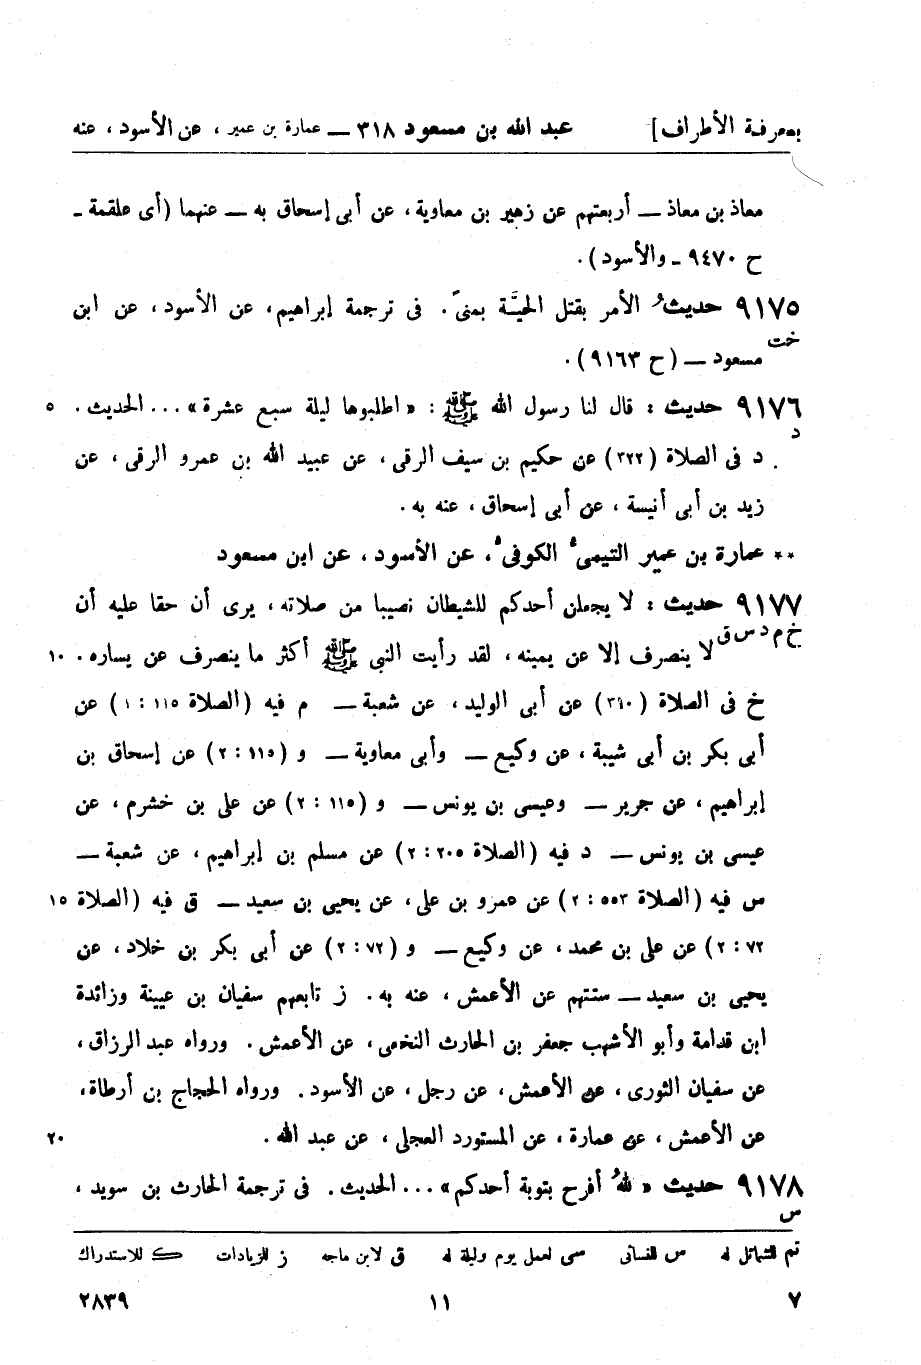 بمعرفة الأطراف] عبد الله بن مسعود ٣١٨ — عمارة بن عمير ، عن الأسود ، عنه
معاذ بن معاذ — أربعتهم عن زهير بن معاوية، عن أبى إسحاق به — عنهما (أى علقمة ـ
ح ٩٤٧٠ ـ والأسود).
٩١٧٥ حديثُ الأمر بقتل الحيَّة بمنىً. فى ترجمة إبراهيم، عن الأسود، عن ابن
خت
مسعود — (ح ٩١٦٣).
٩١٧٦ حديث : قال لنا رسول الله ﷺ : « اطلبوها ليلة سبع عشرة»... الحديث. ٥
د
د فى الصلاة (٣٢٢) عن حكيم بن سيف الرقى، عن عبيد الله بن عمرو الرقى، عن
زيد بن أبى أنيسة ، عن أبى إسحاق ، عنه به.
** عمارة بن عمير التيمى الكوفى، عن الأسود، عن ابن مسعود
٩١٧٧ حديث : لا يجعلن أحدكم للشيطان نصيبا من صلاته، يرى أن حقا عليه أن
خ م د س ق
لا ينصرف إلا عن يمينه، لقد رأيت النبى ﷺ أكثر ما ينصرف عن يساره. ١٠
خ فى الصلاة (٣١٠) عن أبى الوليد، عن شعبة — م فيه (الصلاة ١١٥ : ١) عن
أبى بكر بن أبى شيبة، عن وكيع — وأبى معاوية — و (١١٥ : ٢) عن إسحاق بن
إبراهيم، عن جرير — وعيسى بن يونس — و (١١٥ : ٢) عن على بن خشرم، عن
عيسى بن يونس — د فيه (الصلاة ٢٠٥ : ٢) عن مسلم بن إبراهيم، عن شعبة —
س فيه (الصلاة ٥٥٣ : ٢) عن عمرو بن على، عن يحيى بن سعيد — ق فيه (الصلاة ١٥
٧٢ : ٢) عن على بن محمد، عن وكيع — و (٧٢ : ٢) عن أبى بكر بن خلاد، عن
يحيى بن سعيد — ستتهم عن الأعمش، عنه به. ز تابعهم سفيان بن عيينة وزائدة
ابن قدامة وأبو الأشهب جعفر بن الحارث النخعى، عن الأعمش. ورواه عبد الرزاق،
عن سفيان الثورى، عن الأعمش، عن رجل، عن الأسود. ورواه الحجاج بن أرطاة،
عن الأعمش، عن عمارة، عن المستورد العجلى، عن عبد الله. ٢٠
٩١٧٨ حديث « للهُ أفرح بتوبة أحدكم»... الحديث. فى ترجمة الحارث بن سويد ،
س
تم للشمائل له س للنسائى سى لعمل يوم وليلة له ق لابن ماجه ز للزيادات ك للاستدراك
٧ ١١ ٢٨٣٩